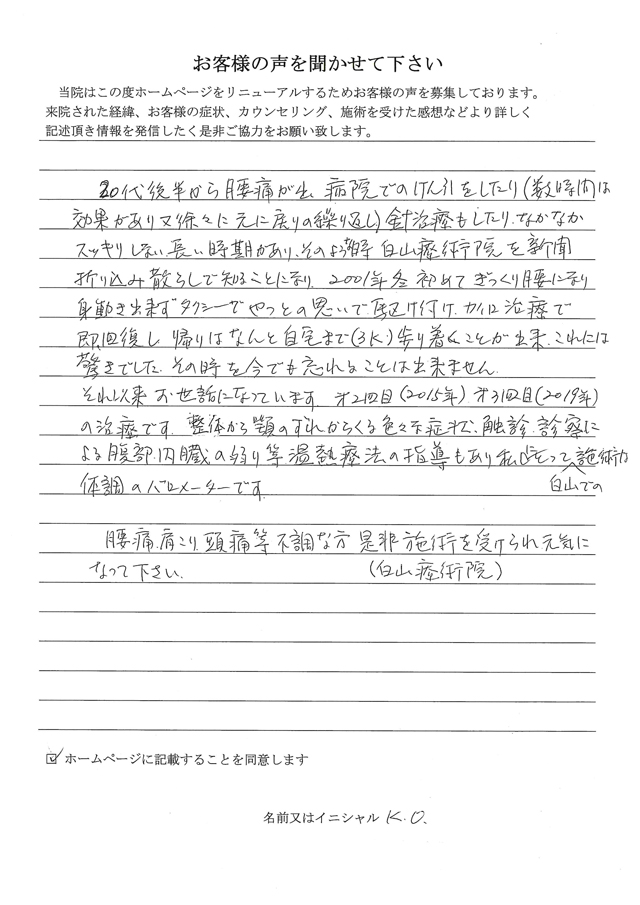 お客様の声を聞かせて下さい
当院はこの度ホームページをリニューアルするためお客様の声を募集しております。
来院された経緯、お客様の症状、カウンセリング、施術を受けた感想などより詳しく
記述頂き情報を発信したく是非ご協力をお願い致します。
20代後半から腰痛が出 病院でのけん引をしたり(数時間は
効果があり又徐々に元に戻りの繰り返し)針治療もしたり、なかなか
スッキリしない長い時期があり、そのような時 白山療術院を新聞
折り込み散らしで知ることになり、2001年冬初めてぎっくり腰になり
身動き出来ずタクシーでやっとの思いで駆け付け、カイロ治療で
即回復し 帰りはなんと自宅まで(3K)歩り着くことが出来、これには
驚きでした。その時を今でも忘れることは出来ません。
それ以来お世話になっています。才2回目(2015年)、才3回目(2019年)
の治療です。整体から顎のずれからくる色々な症状、触診、診察に
よる腹部、内臓の弱り等温熱療法の指導もあり私にとって施術が
白山での
体調のバロメーターです。
腰痛、肩こり、頭痛等不調な方 是非施術を受けられ元気に
なって下さい。 (白山療術院)
☑ ホームページに記載することを同意します
名前又はイニシャル K.O.